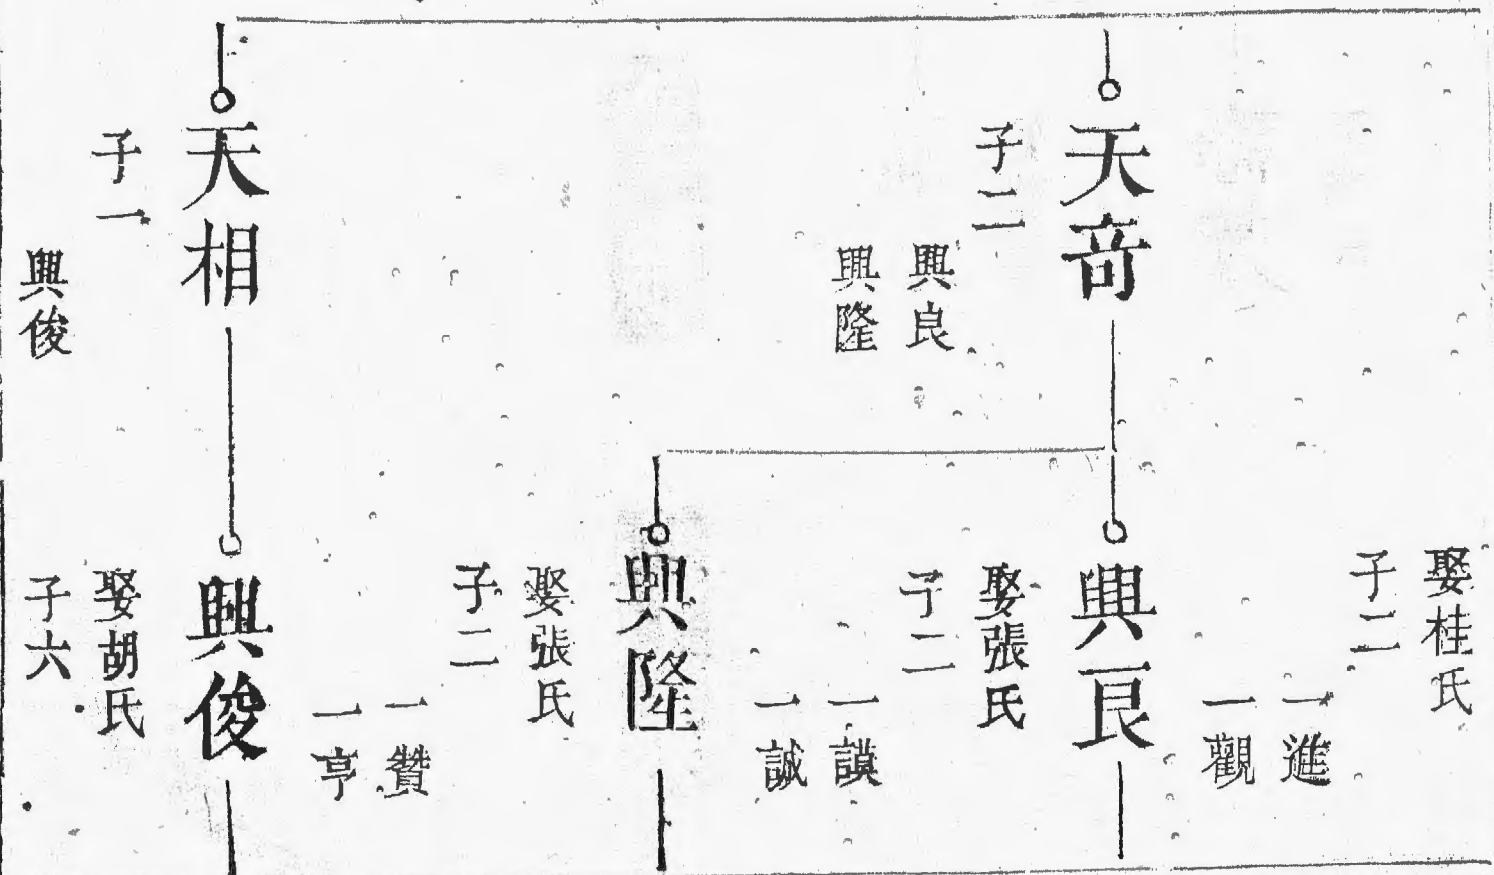 娶桂氏
子二
一進
一觀
天奇
子二
興良
興隆
興良
娶張氏
子二
一謨
一誠
興隆
娶張氏
子二
一贊
一亨
天相
子一
興俊
興俊
娶胡氏
子六